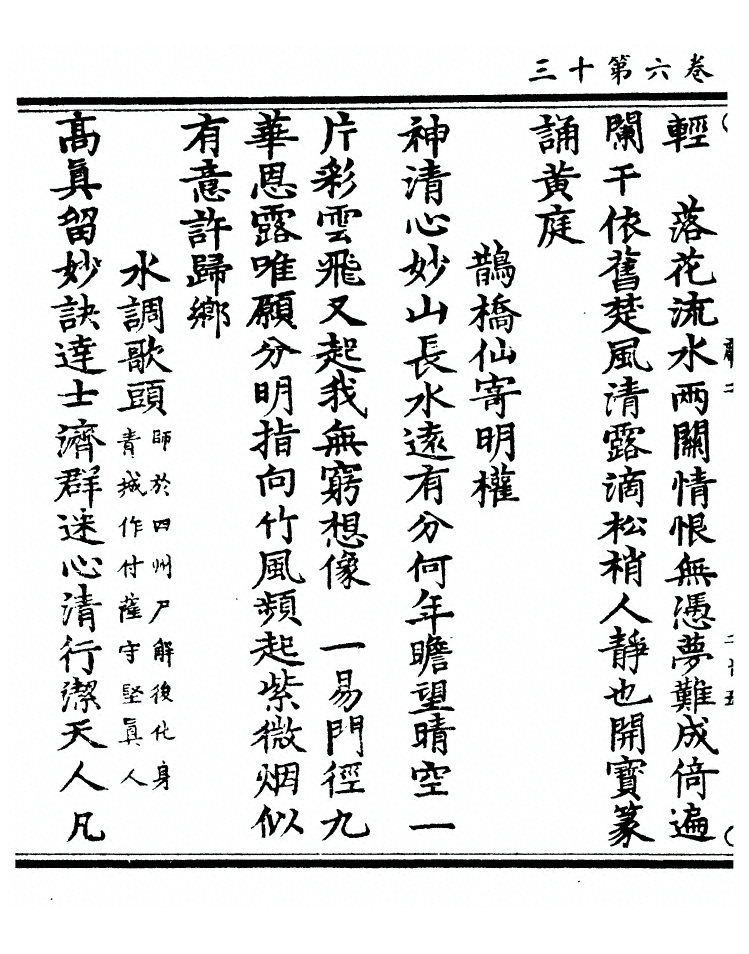 三十第六卷
輕　落花流水两關情恨無憑夢難成倚遍
闌干依舊楚風清露滴松梢人靜也開寶篆
誦黄庭
鵲橋仙寄明權
神清心妙山長水遠有分何年瞻望晴空一
片彩雲飛又起我無窮想像　一易門徑九
華恩露唯願分明指向竹風頻起紫微烟似
有意許歸鄉
水調歌頭師於四州尸解後化身
青城作付薩守堅眞人
高眞留妙訣達士濟群迷心清行潔天人凡